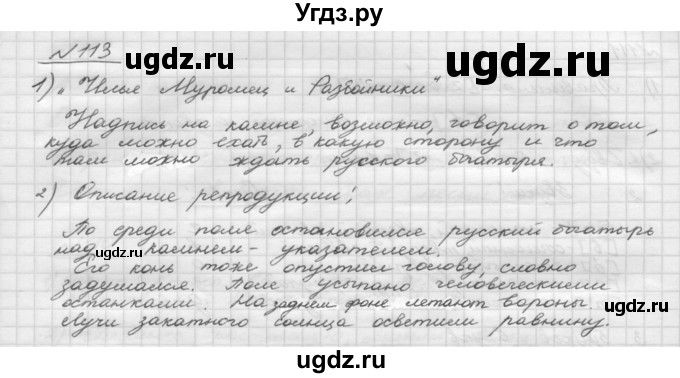 Угдз.ру
№113
1) „Илья Муромец и Разбойники“
Надпись на камне, возможно, говорит о том,
куда можно ехать, в какую сторону и что
там можно ждать русского богатыря.
2) Описание репродукции!
По среди поля остановился русский богатырь
над камнем-указателем.
Его конь тоже опустил голову, словно
задумался. Поле усыпано человеческими
останками. На заднем фоне летают вороны.
Лучи закатного солнца осветили равнину.
ugdz.ru
ugdz.ru
ugdz.ru
ugdz.ru
ugdz.ru
ugdz.ru
ugdz.ru
ugdz.ru